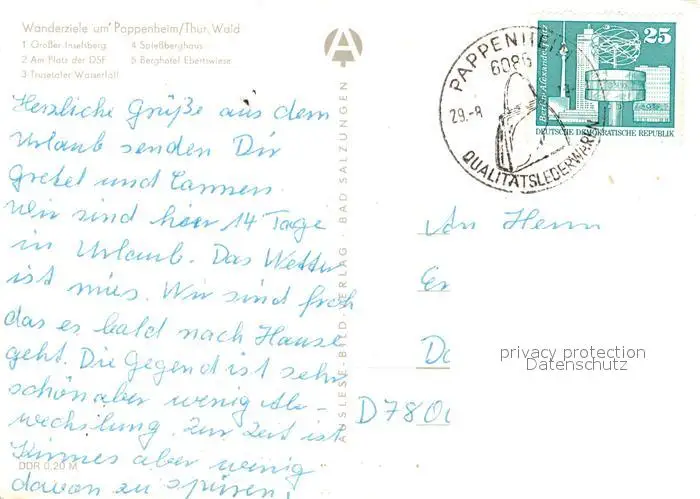 Wanderziele um' Pappenheim/Thür. Wald
1 Großer Inselsberg 4 Spießberghaus
2 Am Platz der DSF 5 Berghotel Ebertswiese
3 Trusetaler Wasserfall
Herzliche Grüße aus dem
Urlaub senden Dir
Gretel und Carmen.
Wir sind hier 14 Tage
in Urlaub. Das Wetter
ist mies. Wir sind froh
das es bald nach Hause
geht. Die Gegend ist sehr
schön aber wenig Ab-
wechslung. Zur Zeit ist
Kirmes aber wenig
davon zu spüren!
DDR 0,20 M
AUSLESE-BILD-VERLAG · BAD SALZUNGEN
PAPPENHEIM
6086
29.-8
QUALITÄTSLEDERWAREN
Berlin, Alexanderplatz
25
DEUTSCHE DEMOKRATISCHE REPUBLIK
An Herrn
D780
privacy protection
Datenschutz